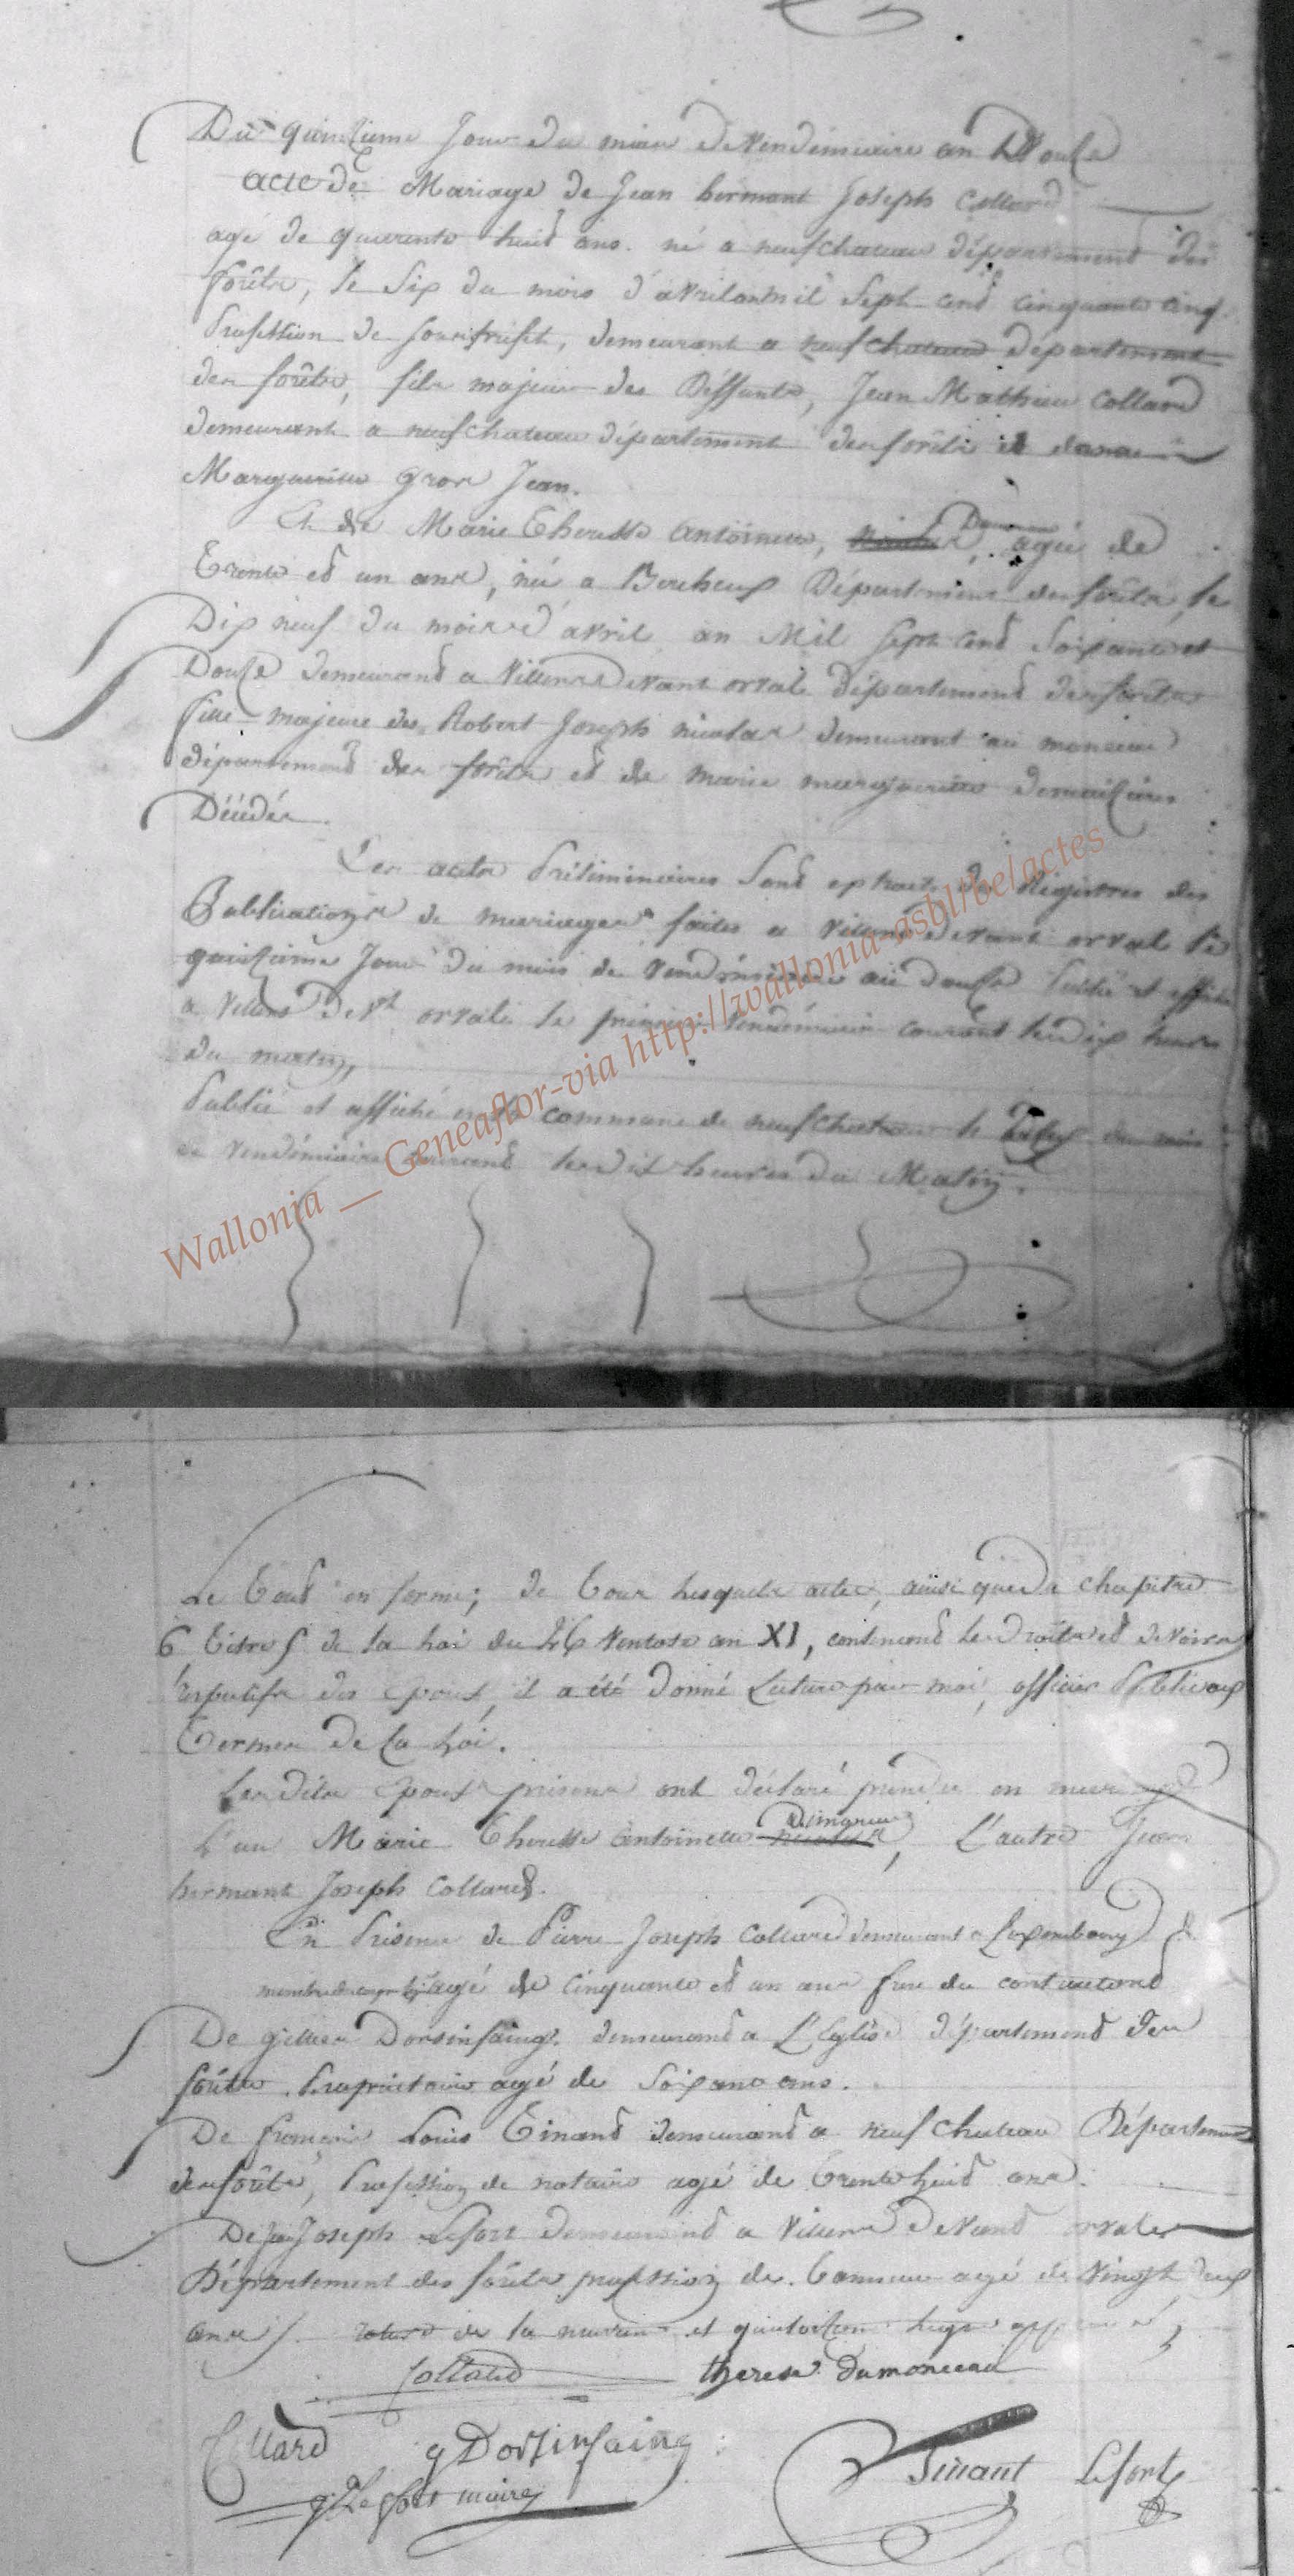 Du quinzieme Jour du mois de Vendémiaire an Douze
acte de Mariage de Jean hermant Joseph Collard
agé de quarente huid ans. né a neufchateau département des
forêts, le Six du mois d'avril an mil Sept cend cinquante cinq.
Profession de, demeurant a neufchateau département
des forêts, fils majeur des Déffunts, Jean Mathieu Collard
demeurant a neufchateau département des forêts et
Margueritte Gros Jean.
Et de Marie Theresse Antoinette, agée de
Trente et un ans, née a Bercheux Département des forêts, le
Dix neuf du mois d'avril an Mil Sept cend Soixante et
Douze demeurand a Villers Devant orval département des forêts
fille majeure des Robert Joseph nicolas demeurant au monceau
département des forêts et de marie margueritte
Décédés
Les actes Préliminaires Sont extraits des Registres des
Publications de mariages faites a Villers devant orval le
quinzieme Jour du mois de Vendémiaire an douze Publié et affiché
a Villers Devt orval le premier Vendémiaire courant les dix heures
du matin,
Publié et affiché en la commune de neufchateau le du mois
de Vendémiaire courand les dix heures du Matin.
Wallonia __ Geneaflor-via http://wallonia-asbl/be/actes
Le Tout en forme; de Tous lesquels actes, ainsi que du chapitre
6 Titre 5 de la Loi du 26 Ventose an XI, contenand les Droits et devoirs
respectifs des epoux, il a été Donné Lecture par moi, officier Public aux
Termes de la Loi.
Les dits epoux présens ont déclaré prendre en mariage
L'un Marie Theresse Antoinette, L'autre Jean
hermant Joseph Collard.
En Présence de Pierre Joseph Collard demeurant a Luxembourg
agé de Cinquante et un ans frere du contractand
De gillien Dorsinfaing. demeurand a L'Eglise département des
forêts. Propriétaire agé de Soixante ans.
De françois Louis Tinand demeurand a neufchateau Département
des forêts, Profession de notaire agé de Trente huid ans.
De Joseph Lefort demeurand a Villers Devand orval
Département des forêts profession de Tanneur agé de Vingt deux
ans
Collard therese dumonceau
Collard g Dorsinfaing Tinant Lefort
g Lefort maire